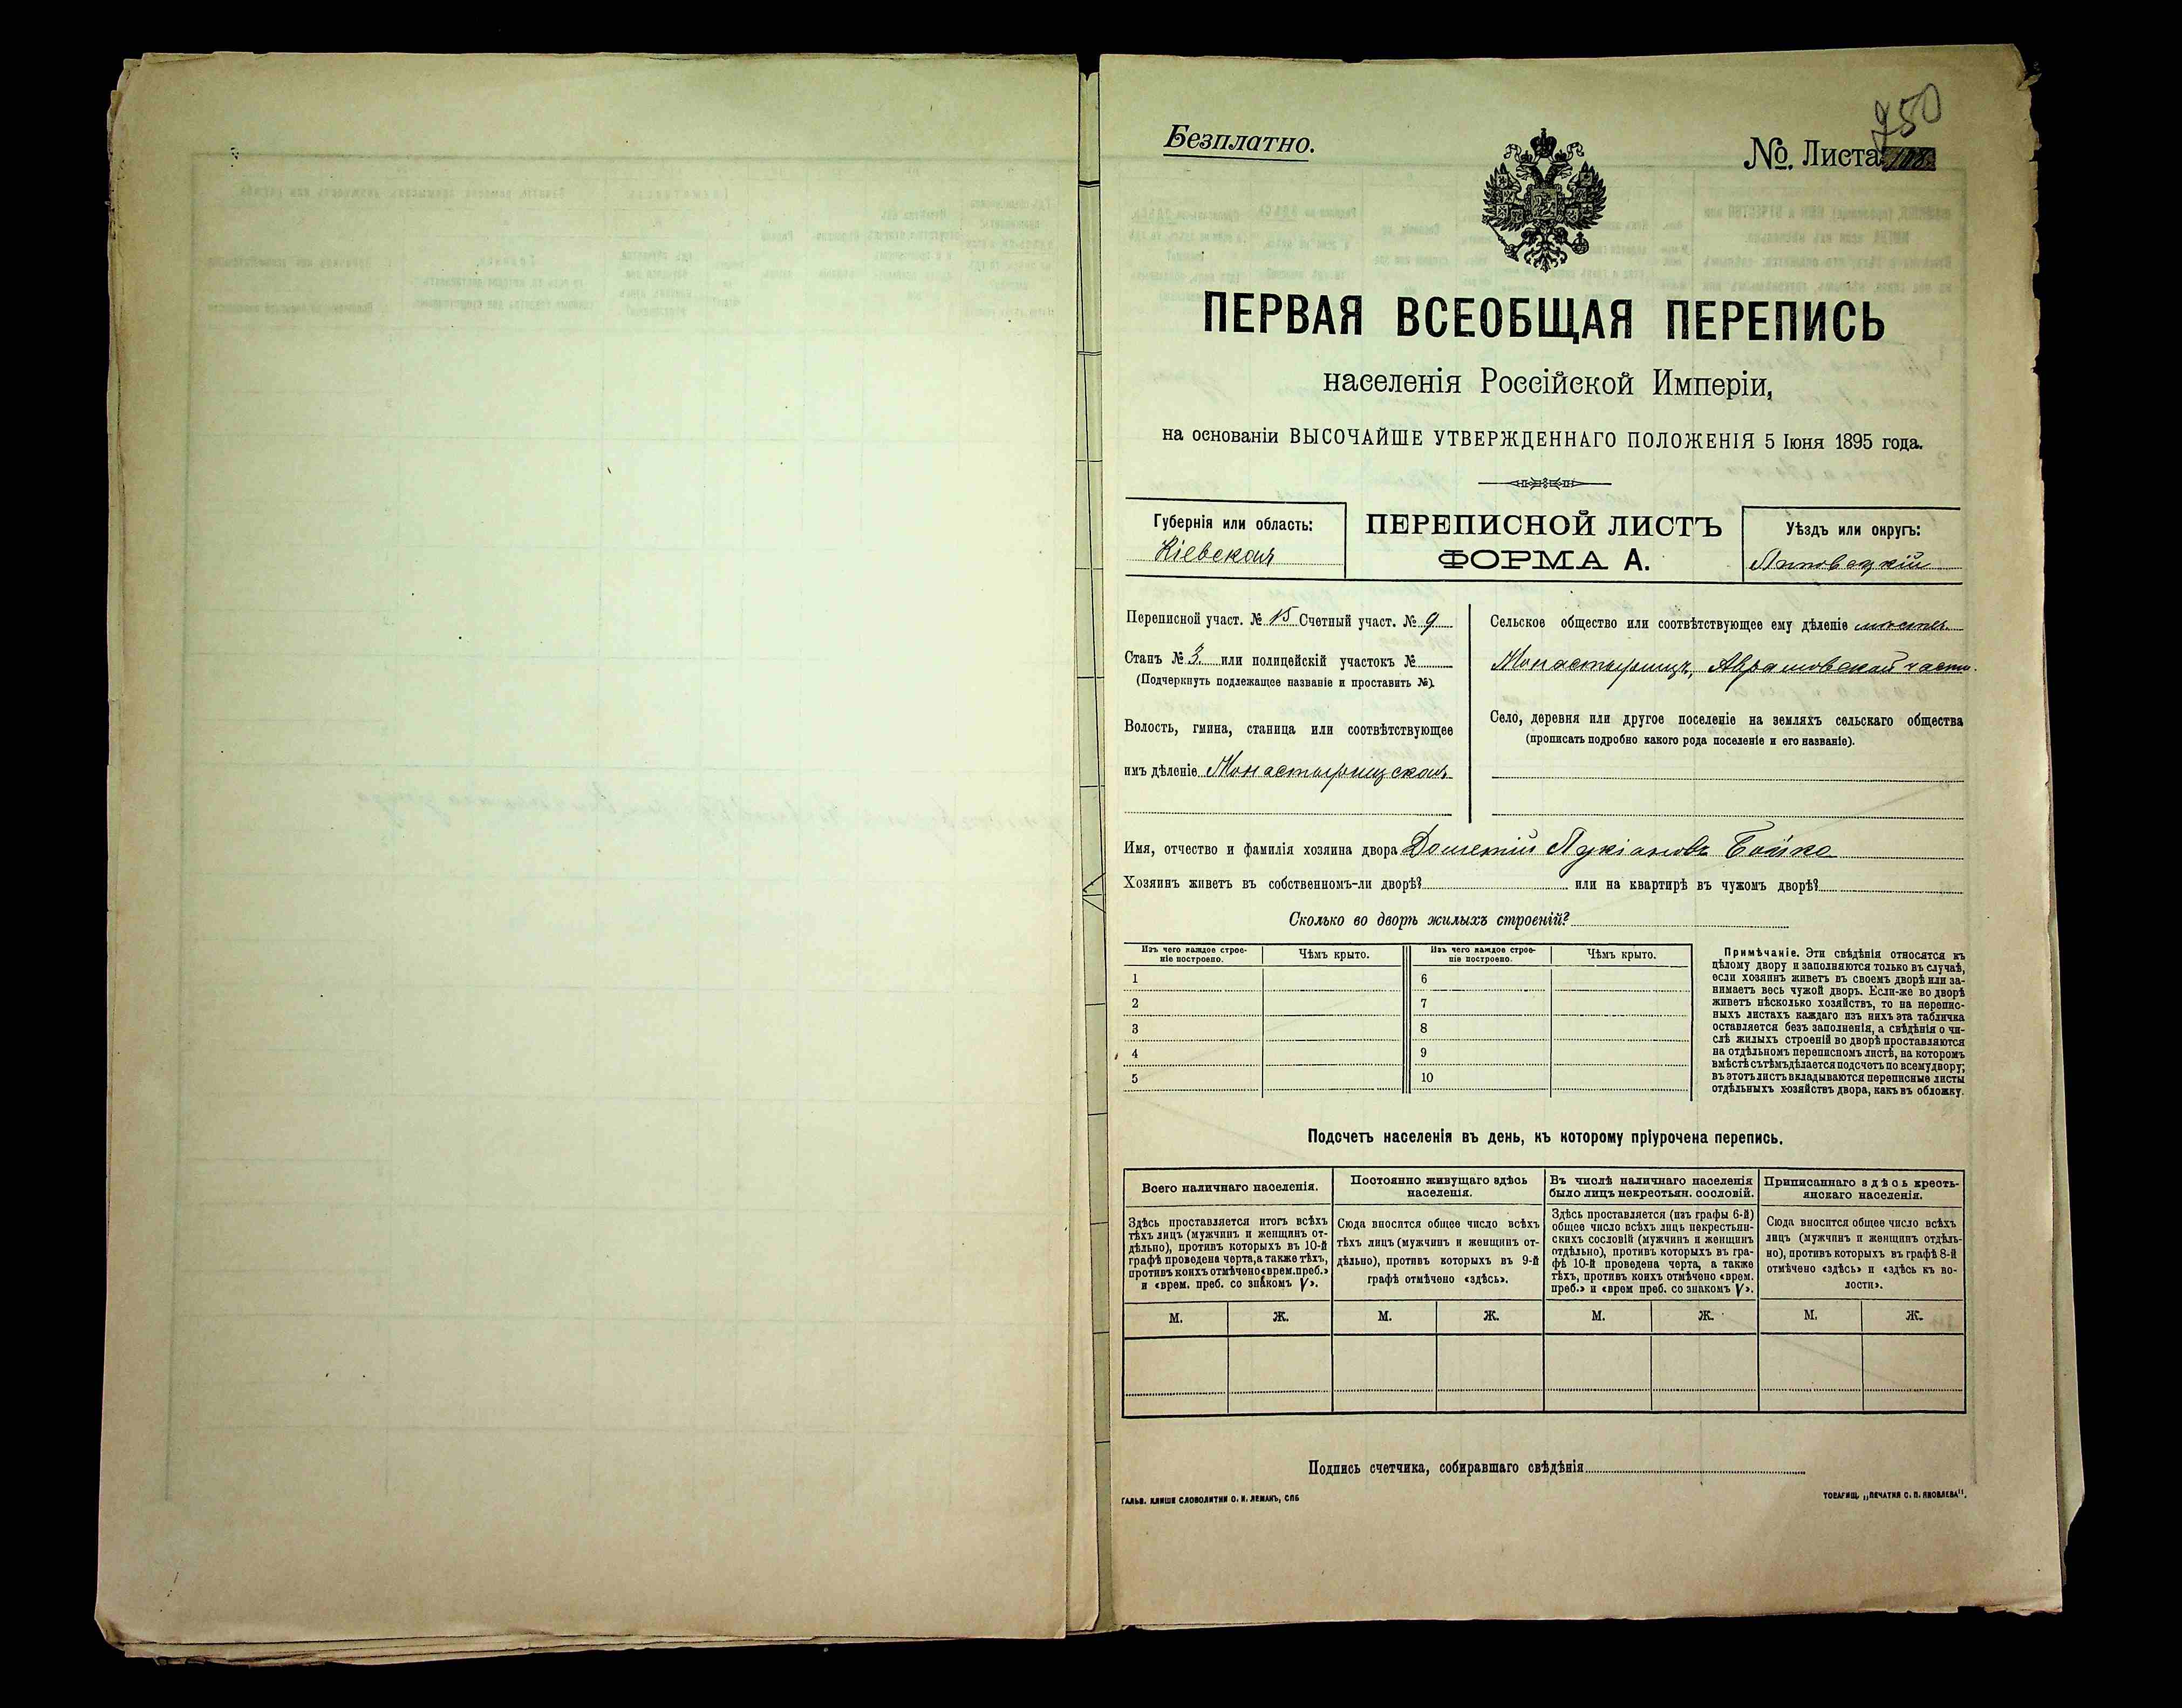 750
Безплатно.
№ Листа
ПЕРВАЯ ВСЕОБЩАЯ ПЕРЕПИСЬ
населенія Россійской Имперіи,
на основаніи ВЫСОЧАЙШЕ УТВЕРЖДЕННАГО ПОЛОЖЕНІЯ 5 Іюня 1895 года.
Губернія или область:
Кіевская
ПЕРЕПИСНОЙ ЛИСТЪ
ФОРМА А.
Уѣздъ или округъ:
Липовецкій
Переписной участ. № 15 Счетный участ. № 9
Станъ № 3 или полицейскій участокъ №
(Подчеркнуть подлежащее названіе и проставить №).
Волость, гмина, станица или соотвѣтствующее
имъ дѣленіе Монастырищская
Сельское общество или соотвѣтствующее ему дѣленіе
Монастырищъ, Аврамовской части
Село, деревня или другое поселеніе на земляхъ сельскаго общества
(прописать подробно какого рода поселеніе и его названіе).
Имя, отчество и фамилія хозяина двора Дометій Лукіановъ Бойко
Хозяинъ живетъ въ собственномъ-ли дворѣ? или на квартирѣ въ чужомъ дворѣ?
Сколько во дворѣ жилыхъ строеній?
Изъ чего каждое строе-
ніе построено.
Чѣмъ крыто.
Изъ чего каждое строе-
ніе построено.
Чѣмъ крыто.
1 6
2 7
3 8
4 9
5 10
Примѣчаніе. Эти свѣдѣнія относятся къ
цѣлому двору и заполняются только въ случаѣ,
если хозяинъ живетъ въ своемъ дворѣ или за-
нимаетъ весь чужой дворъ. Если-же во дворѣ
живетъ нѣсколько хозяйствъ, то на перепис-
ныхъ листахъ каждаго изъ нихъ эта табличка
оставляется безъ заполненія, а свѣдѣнія о чи-
слѣ жилыхъ строеній во дворѣ проставляются
на отдѣльномъ переписномъ листѣ, на которомъ
вмѣстѣ съ тѣмъ дѣлается подсчетъ по всему двору;
въ этотъ листъ вкладываются переписные листы
отдѣльныхъ хозяйствъ двора, какъ въ обложку.
Подсчетъ населенія въ день, къ которому пріурочена перепись.
Всего наличнаго населенія.
Здѣсь проставляется итогъ всѣхъ
тѣхъ лицъ (мужчинъ и женщинъ от-
дѣльно), противъ которыхъ въ 10-й
графѣ проведена черта, а также тѣхъ,
противъ коихъ отмѣчено «врем. преб.»
и «врем. преб. со знакомъ V».
Постоянно живущаго здѣсь
населенія.
Сюда вносится общее число всѣхъ
тѣхъ лицъ (мужчинъ и женщинъ от-
дѣльно), противъ которыхъ въ 9-й
графѣ отмѣчено «здѣсь».
Въ числѣ наличнаго населенія
было лицъ некрестьян. сословій.
Здѣсь проставляется (изъ графы 6-й)
общее число всѣхъ лицъ некрестьян-
скихъ сословій (мужчинъ и женщинъ
отдѣльно), противъ которыхъ въ гра-
фѣ 10-й проведена черта, а также
тѣхъ, противъ коихъ отмѣчено «врем.
преб.» и «врем преб. со знакомъ V».
Приписаннаго здѣсь кресть-
янскаго населенія.
Сюда вносится общее число всѣхъ
лицъ (мужчинъ и женщинъ отдѣль-
но), противъ которыхъ въ графѣ 8-й
отмѣчено «здѣсь» и «здѣсь къ во-
лости».
М. Ж. М. Ж. М. Ж. М. Ж.
Подпись счетчика, собиравшаго свѣдѣнія
ГАЛЬВ. КЛИШЕ СЛОВОЛИТНИ О. И. ЛЕМАНЪ, СПБ
ТОВАРИЩ. „ПЕЧАТНЯ С. П. ЯКОВЛЕВА".